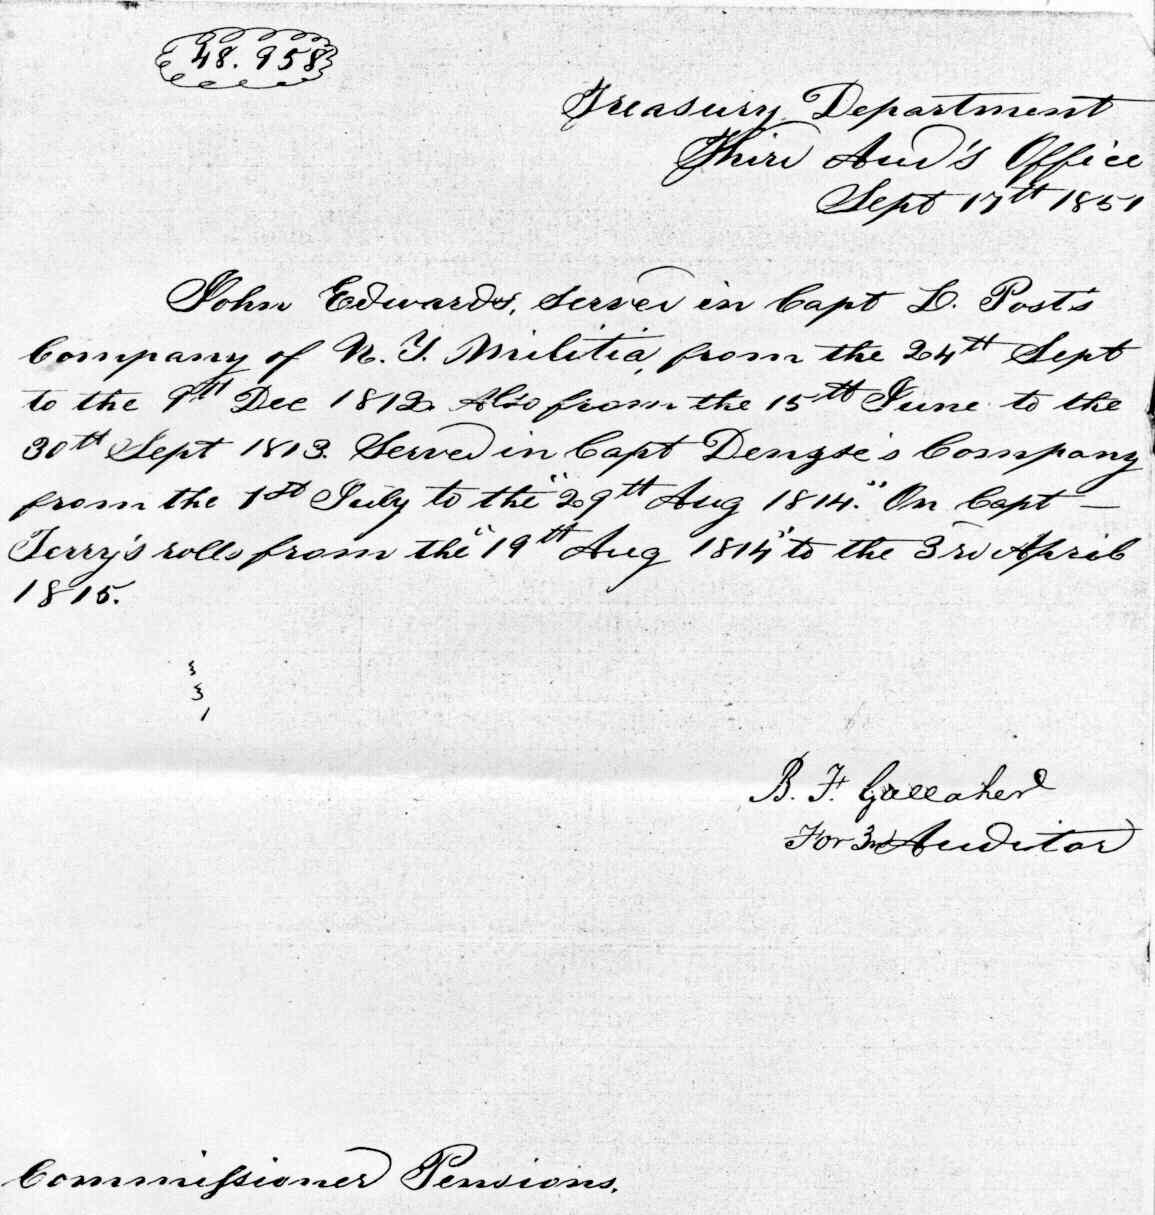 48.958
Treasury Department
Third Aud's Office
Sept 17th 1851
John Edwards, served in Capt L. Post's
Company of N.Y. Militia, from the 24th Sept
to the 9th Dec 1812. Also from the 15th June to the
30th Sept 1813. Served in Capt Dengse's Company
from the 1st July to the "29th Aug 1814." On Capt —
Terry's rolls from the "19th Aug 1814" to the 3rd April
1815.
B. F. Gallaher
For 3rd Auditor
Commissioner Pensions.